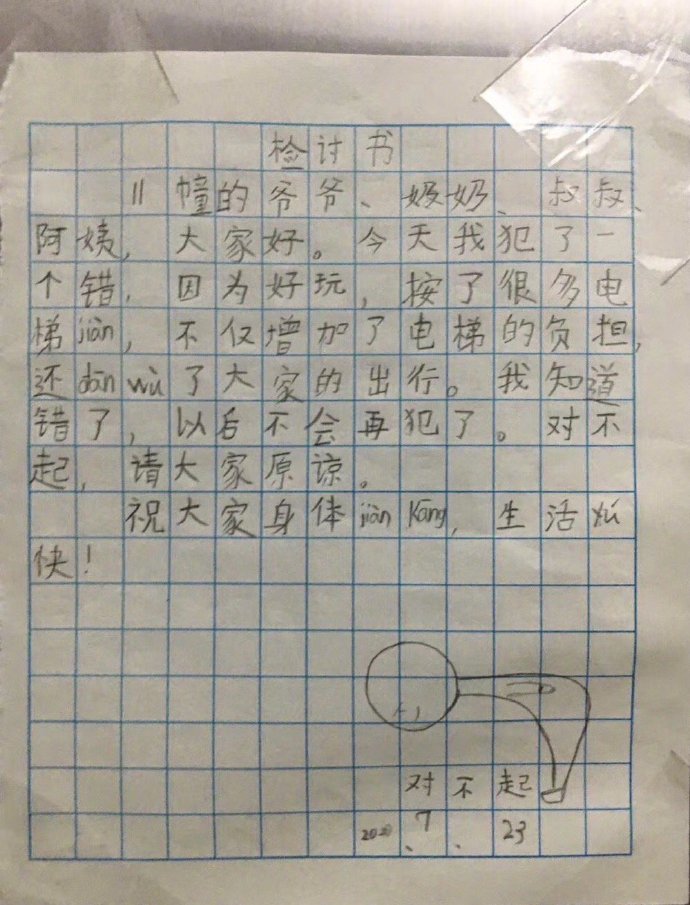 检讨书
11幢的爷爷、奶奶、叔叔、
阿姨，大家好。今天我犯了一
个错，因为好玩，按了很多电
梯jiàn，不仅增加了电梯的负担，
还dān wù了大家的出行。我知道
错了，以后不会再犯了。对不
起，请大家原谅。
祝大家身体jiàn kāng，生活yú
快！
对不起
2020.7.23